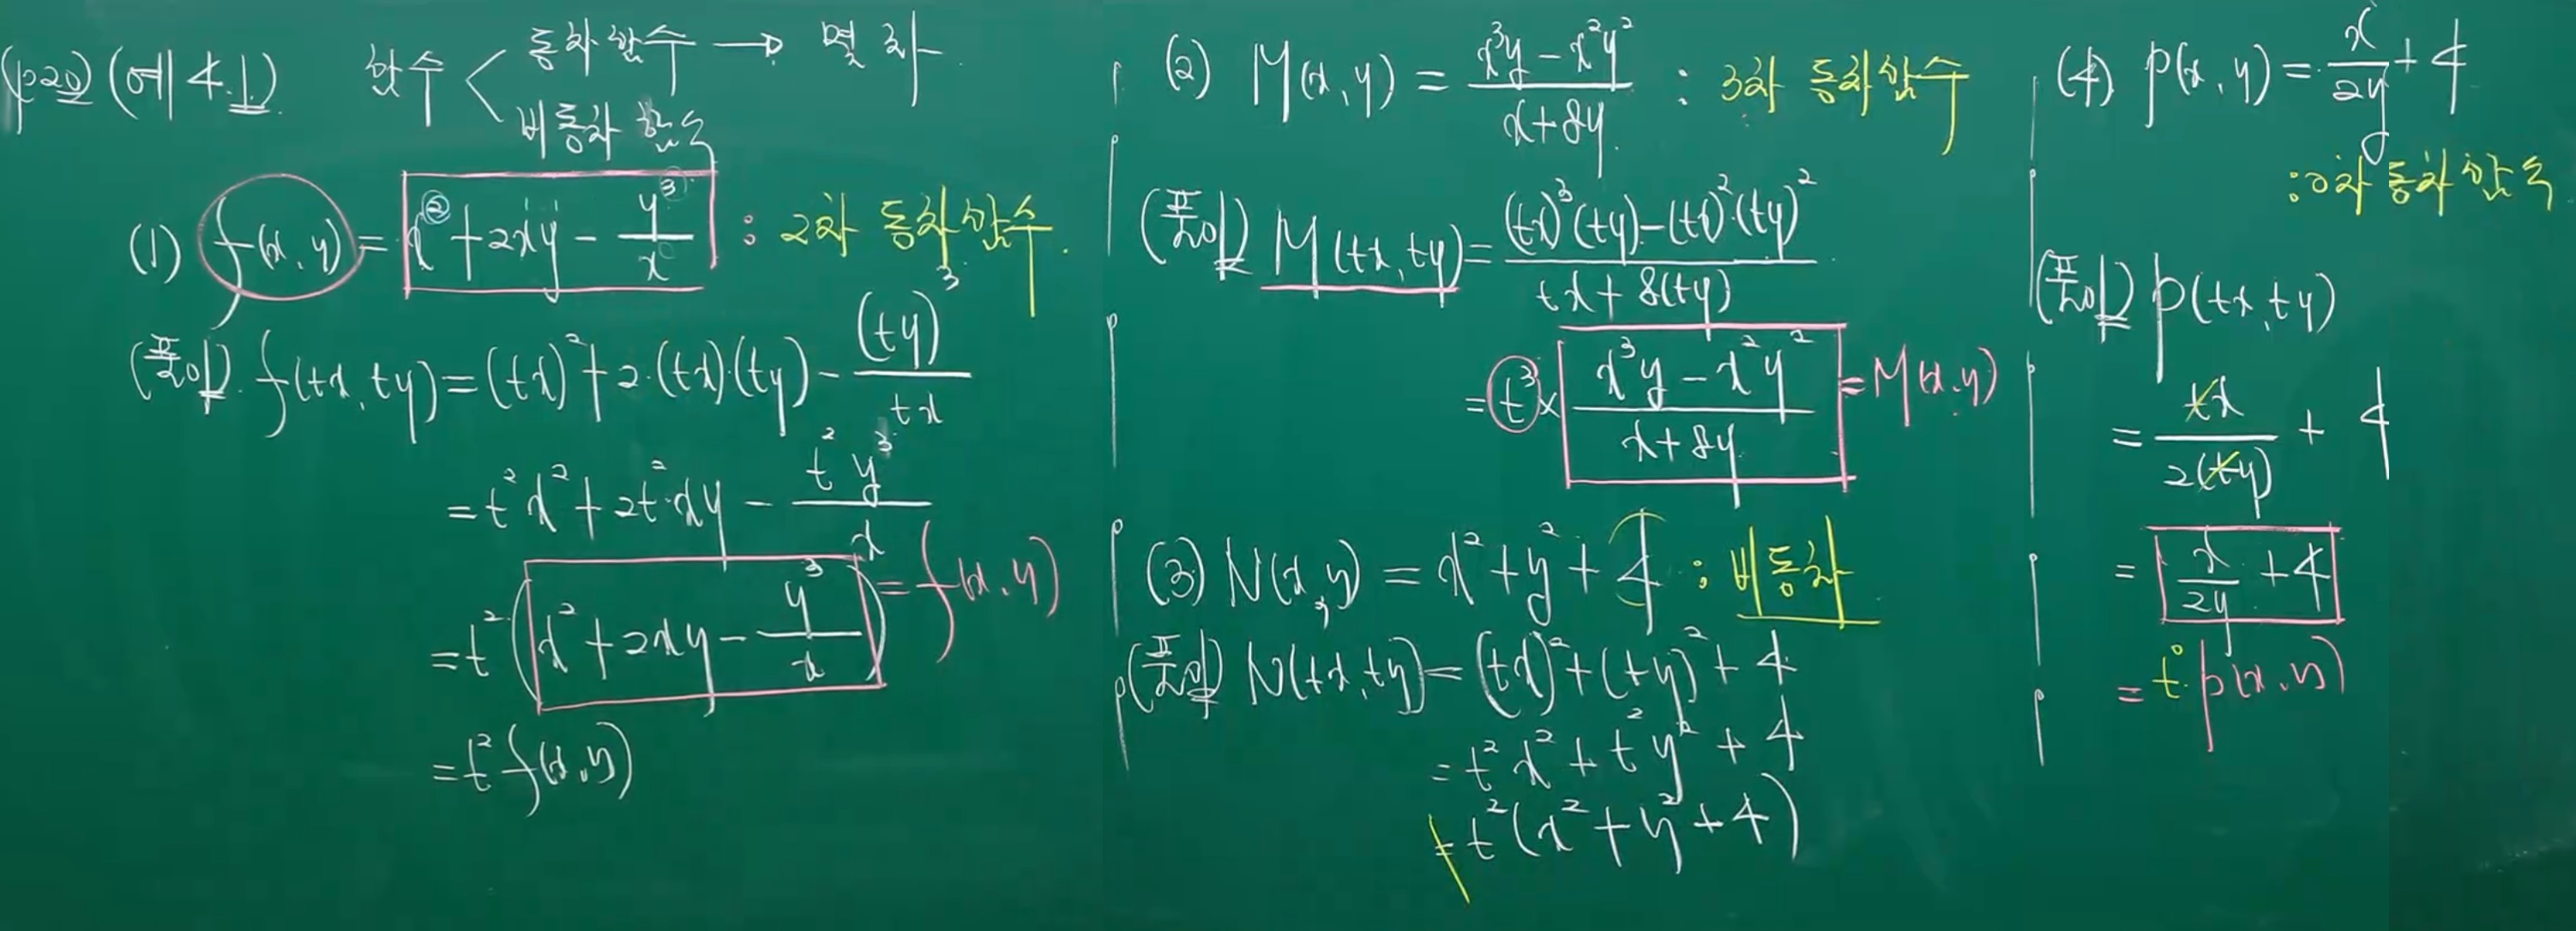 (p20) (예 4.1) 함수 < 동차함수 → 몇 차
비동차 함수
(1) f(x, y) = x² + 2xy - y³/x : 2차 동차함수.
(풀이) f(tx, ty) = (tx)² + 2·(tx)·(ty) - (ty)³/tx
= t²x² + 2t²·xy - t²y³/x
= t²(x² + 2xy - y³/x) = f(x, y)
= t² f(x, y)
(2) M(x, y) = x³y - x²y²/x + 8y : 3차 동차함수
(풀이) M(tx, ty) = (tx)³(ty) - (tx)²·(ty)²/tx + 8(ty)
= t³ × x³y - x²y²/x + 8y = M(x, y)
(3) N(x, y) = x² + y² + 4 : 비동차
(풀이) N(tx, ty) = (tx)² + (ty)² + 4
= t²x² + t²y² + 4
≠ t²(x² + y² + 4)
(4) p(x, y) = x/2y + 4
: 0차 동차함수
(풀이) p(tx, ty)
= tx/2(ty) + 4
= x/2y + 4
= t⁰·p(x, y)